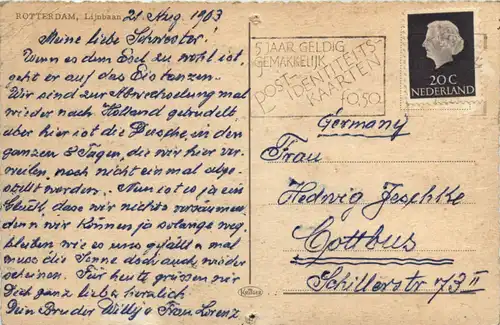 ROTTERDAM, Lijnbaan
21. Aug. 1963
Meine liebe Schwester!
Wenn es dem Esel zu wohl ist,
geht er auf das Eis tanzen.
Wir sind zur Abwechselung mal
wieder nach Holland getrudelt
aber hier ist die Dusche in den
ganzen 8 Tagen, die wir hier ver-
weilen, noch nicht einmal abge-
stellt worden. Nun ist es ja ein
Glück, dass wir nichts versäumen,
denn wir können ja solange weg
bleiben wie es uns gefällt u. mal
muss die Sonne doch auch wieder
scheinen. Für heute grüssen wir
Dich ganz lieb u. herzlich
Dein Bruder Willy u. Frau Lorenz
5 JAAR GELDIG
GEMAKKELIJK
POST-IDENTITEITS-
KAARTEN
f 0,50
20 C
NEDERLAND
Germany
Frau
Hedwig Jeschke
Cottbus
Schillerstr 73 II